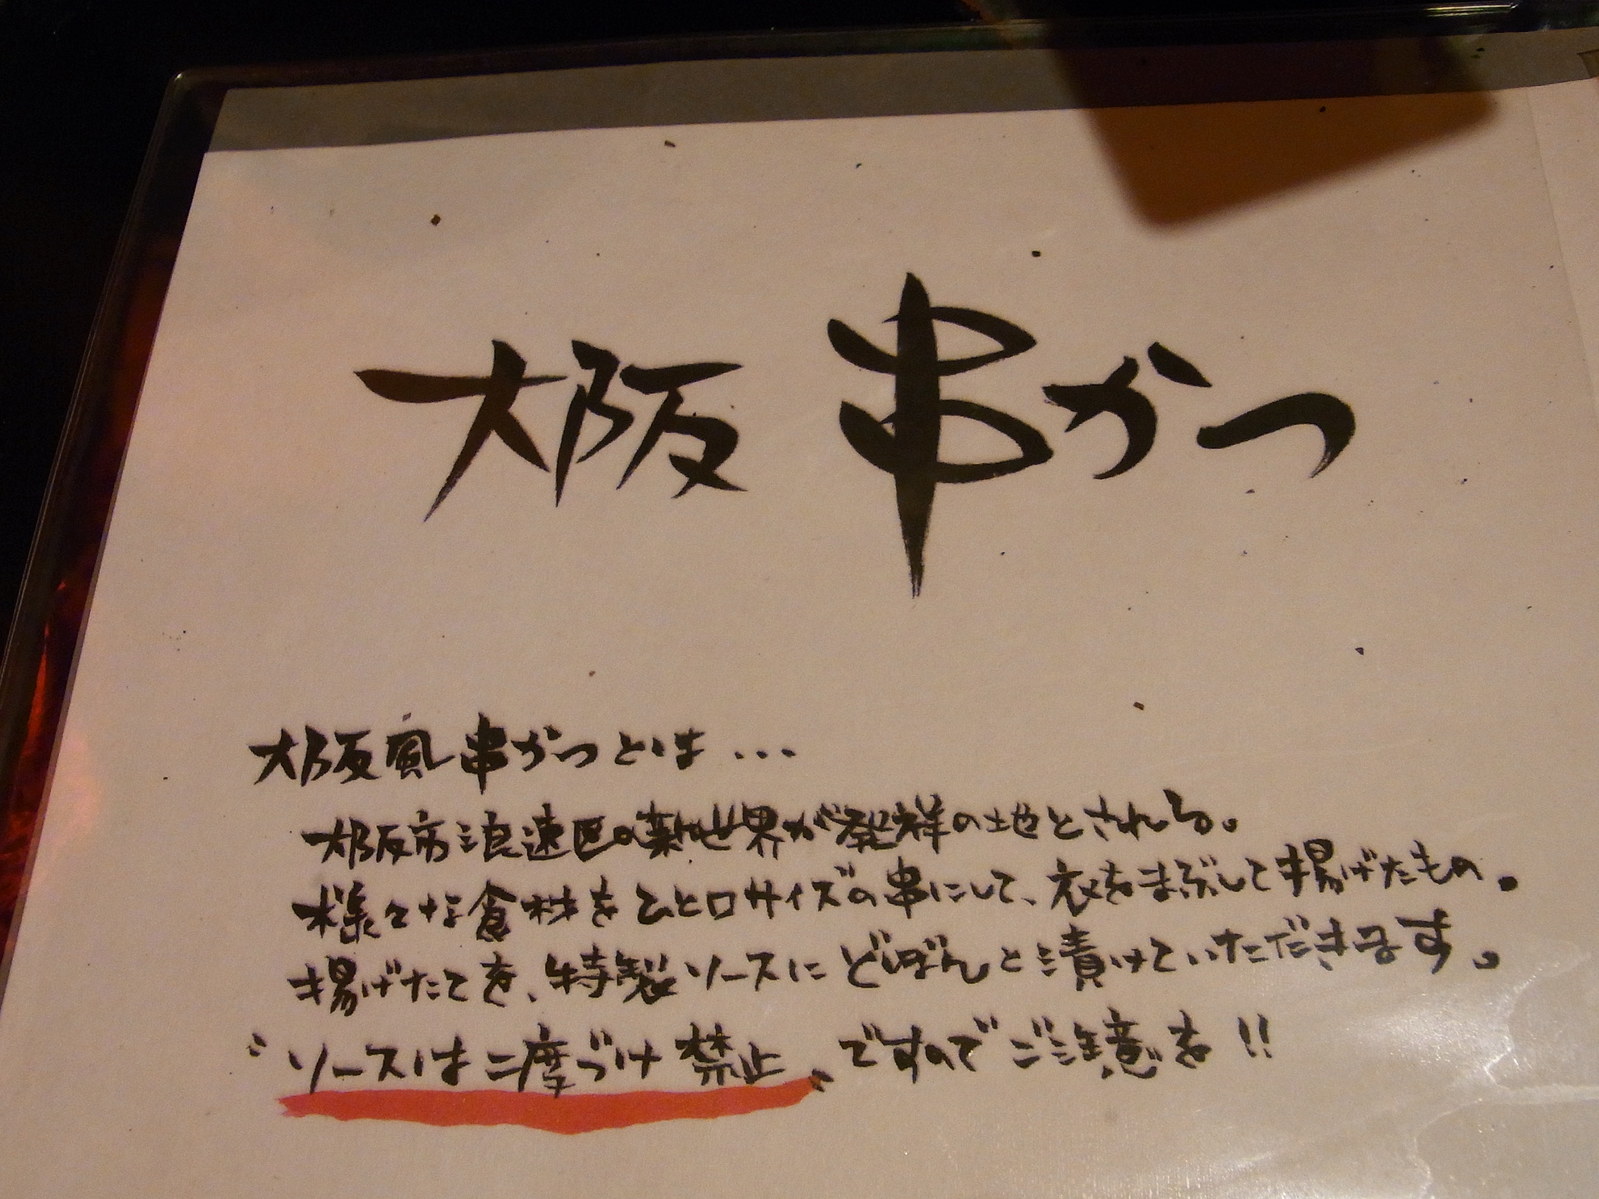 大阪 串かつ
大阪風串かつとは…
大阪市浪速区の新世界が発祥の地とされる。
様々な食材をひと口サイズの串にして、衣をまぶして揚げたもの。
揚げたてを、特製ソースにどぼんと漬けていただきます。
〝ソースは二度づけ禁止〟ですのでご注意を!!